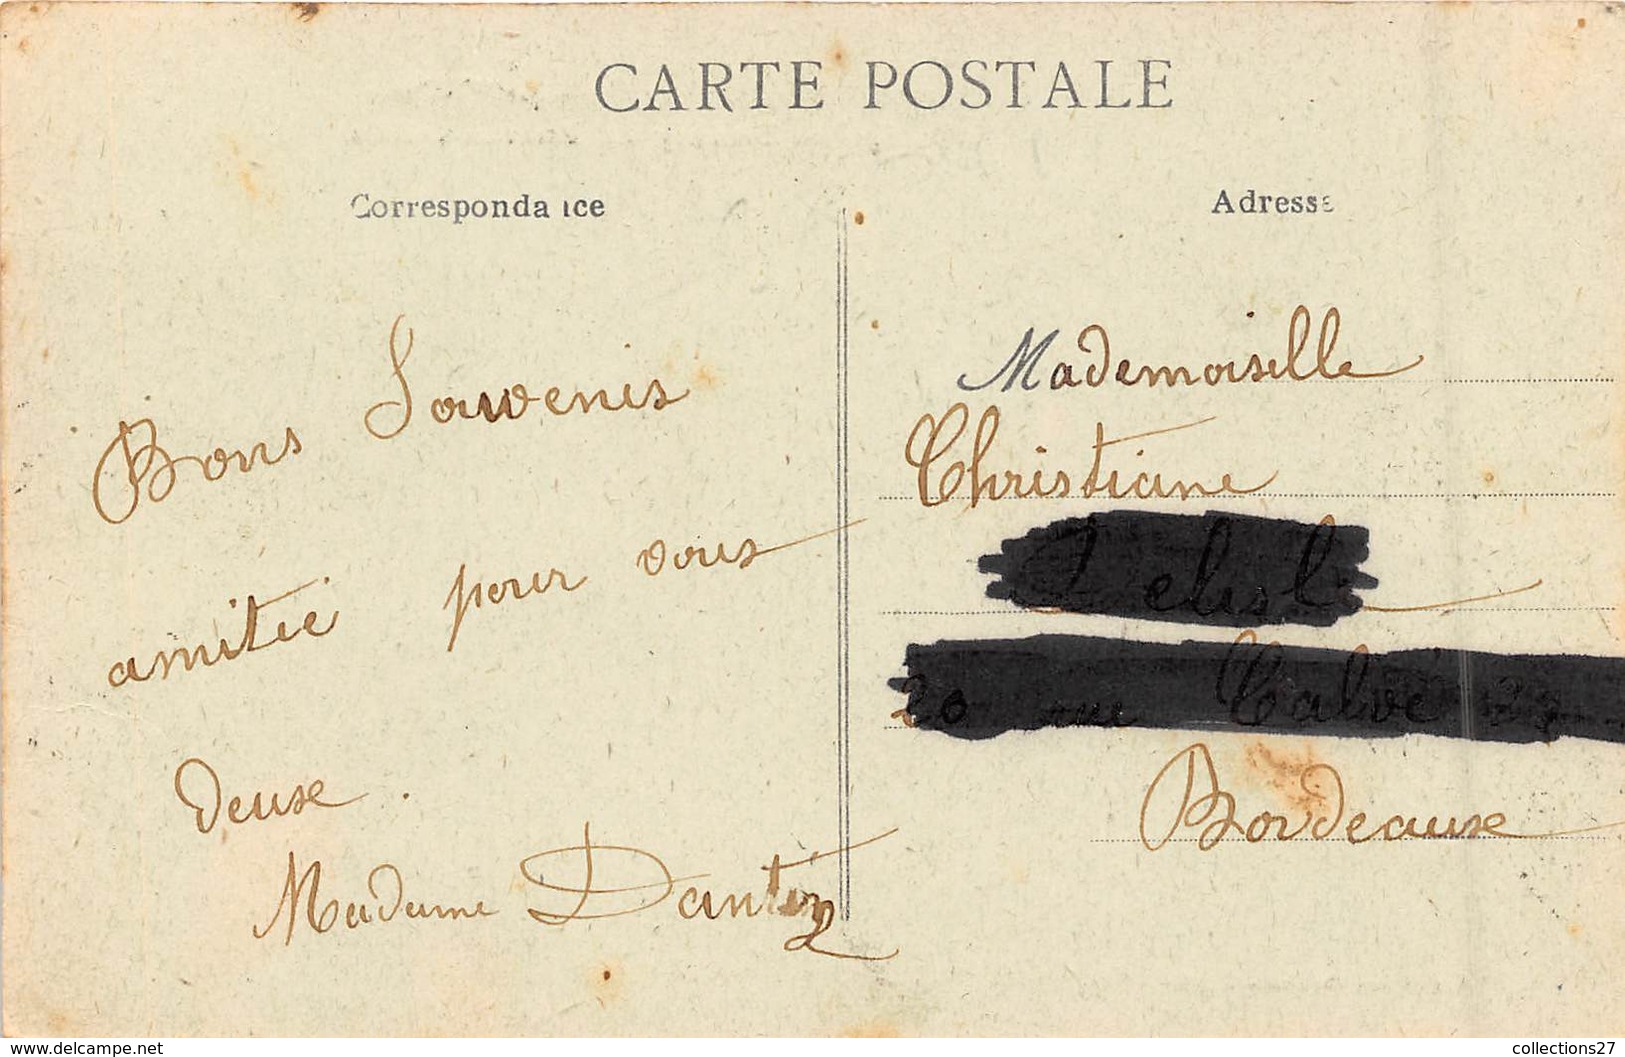 CARTE POSTALE
Correspondance
Adresse
Bons Souvenis
amitié pour vous
deuxe.
Madame
Mademoiselle
Christiane
Bordeauxe
www.delcampe.net
collections27